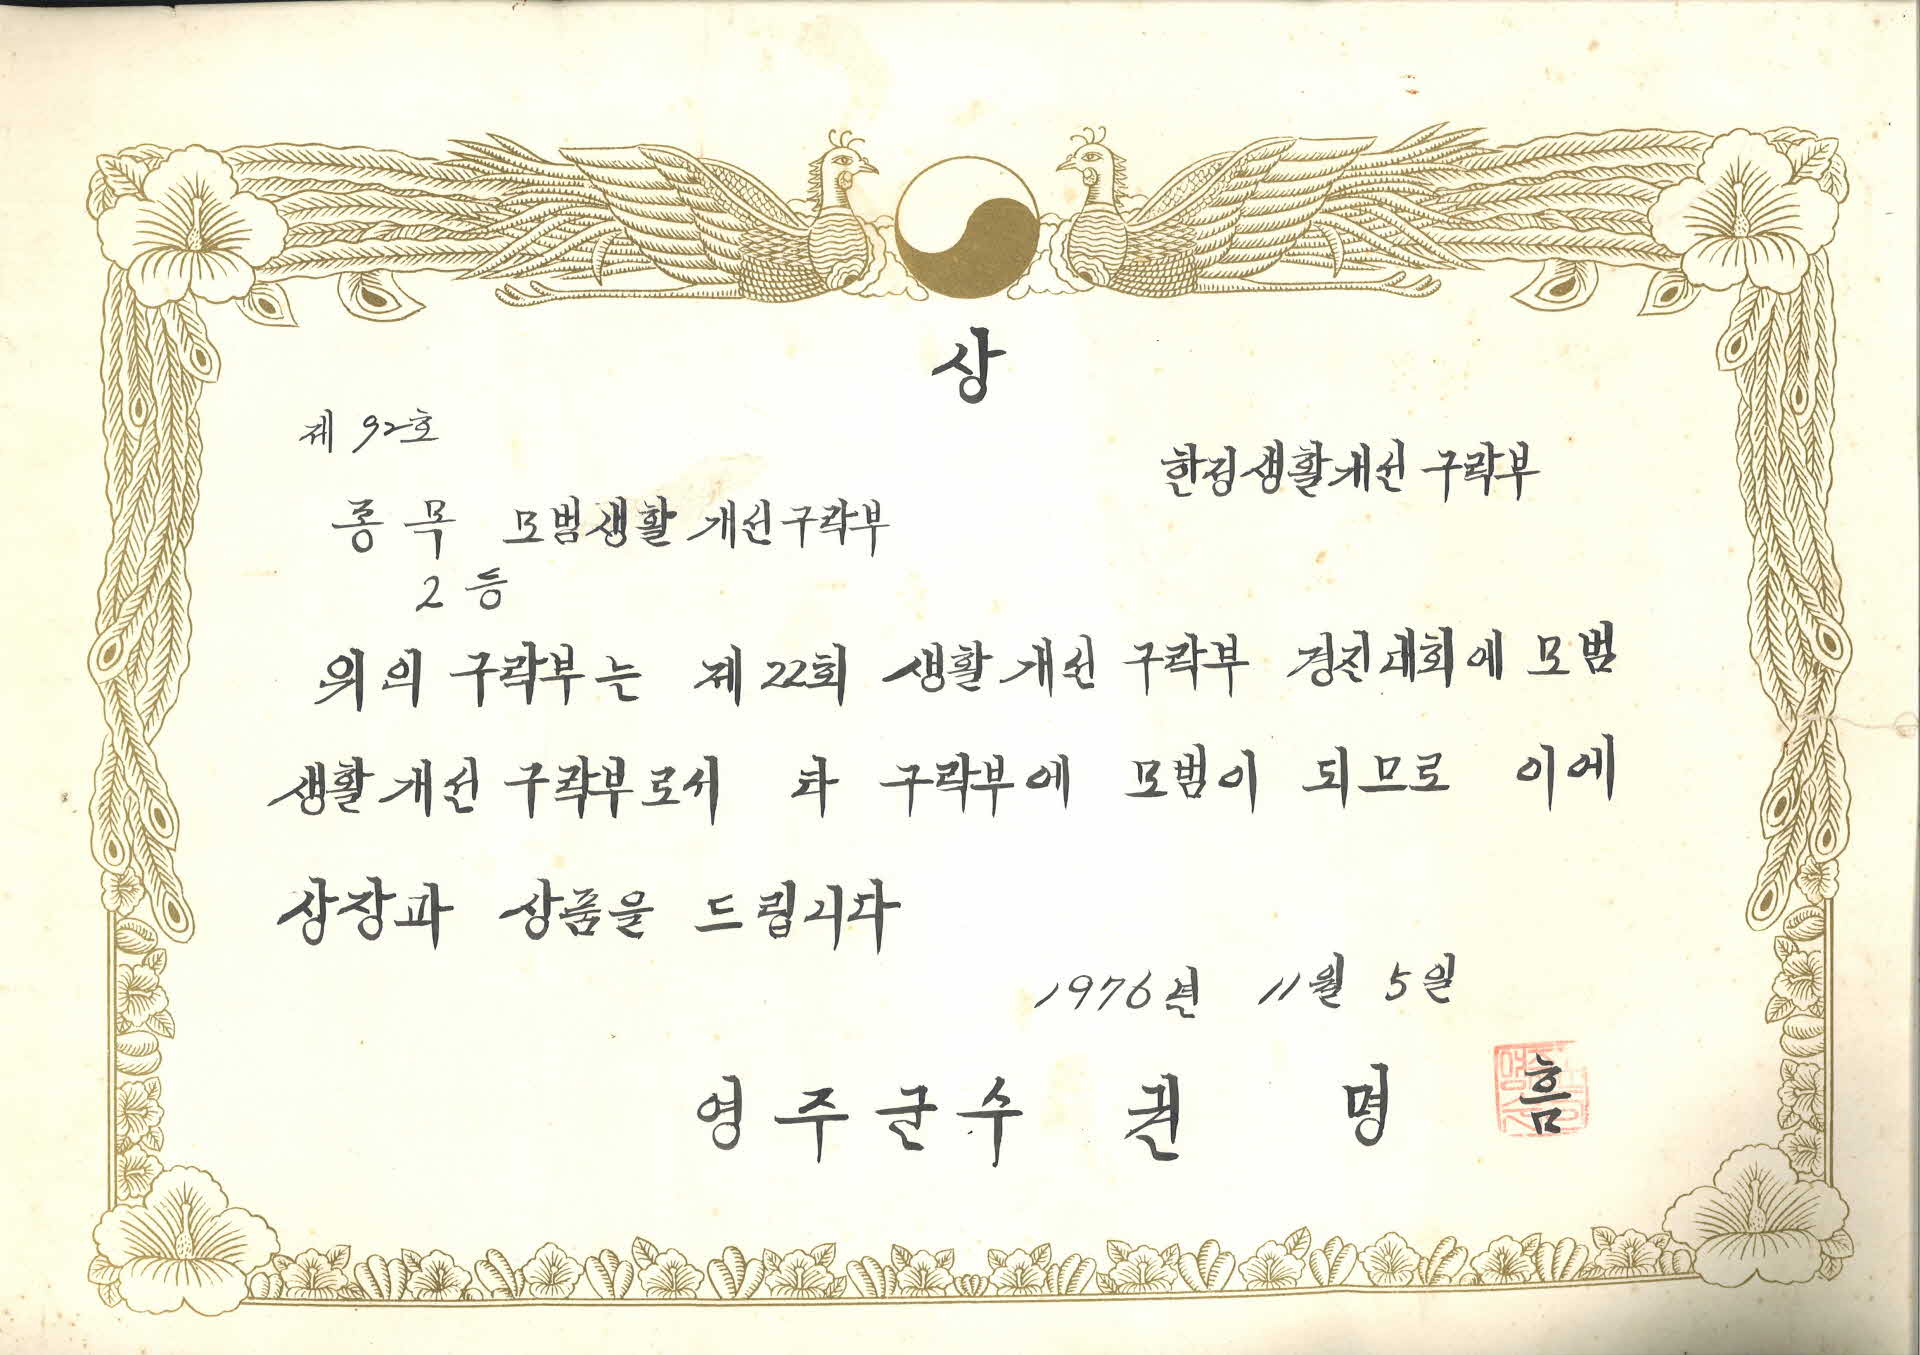 상
제 92호
한정생활개선 구락부
종 목 모범생활개선구락부
2 등
위의 구락부는 제22회 생활개선 구락부 경진대회에 모범
생활개선 구락부로서 타 구락부에 모범이 되므로 이에
상장과 상품을 드립니다
1976년 11월 5일
영주군수 권 명 흠